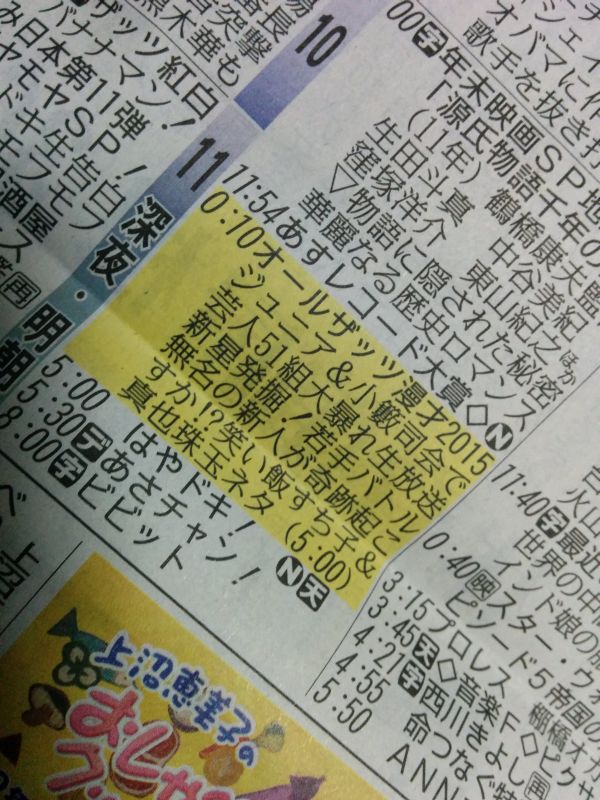 ザッツ紅白!
バナナマン!
み日本第11弾!
ヤモヤSP!
ドキ生告白
モフモフ
酒屋
再
10
11
深夜・明朝
00字年末映画SP地
「源氏物語千年の
(11年) 鶴橋康夫監
生田斗真 中谷美紀
窪塚洋介 東山紀之ほか
▽物語に隠された秘密
華麗なる歴史ロマンス
11:54あすレコード大賞◇N
0:10オールザッツ漫才2015
ジュニア&小籔司会で
芸人51組大暴れ生放送
新星発掘!若手バトル
無名の新人が奇跡起こ
すか!?笑い飯すち子&
真也珠玉ネタ (5:00)
5:00 はやドキ! N天
5:30デあさチャン!
8:00字ビビット
オバマに
歌手を抜き打
11:40字最近
世界の中
インド娘の
0:40映スター・ウォ
ピソード5帝国の
3:15プロレス 棚橋オカ
3:45天◇音楽F◇ピクサ
4:21字西川きよし再
4:55 命つなぐ特
5:50 ANN
上沼恵美子の
おしゃ